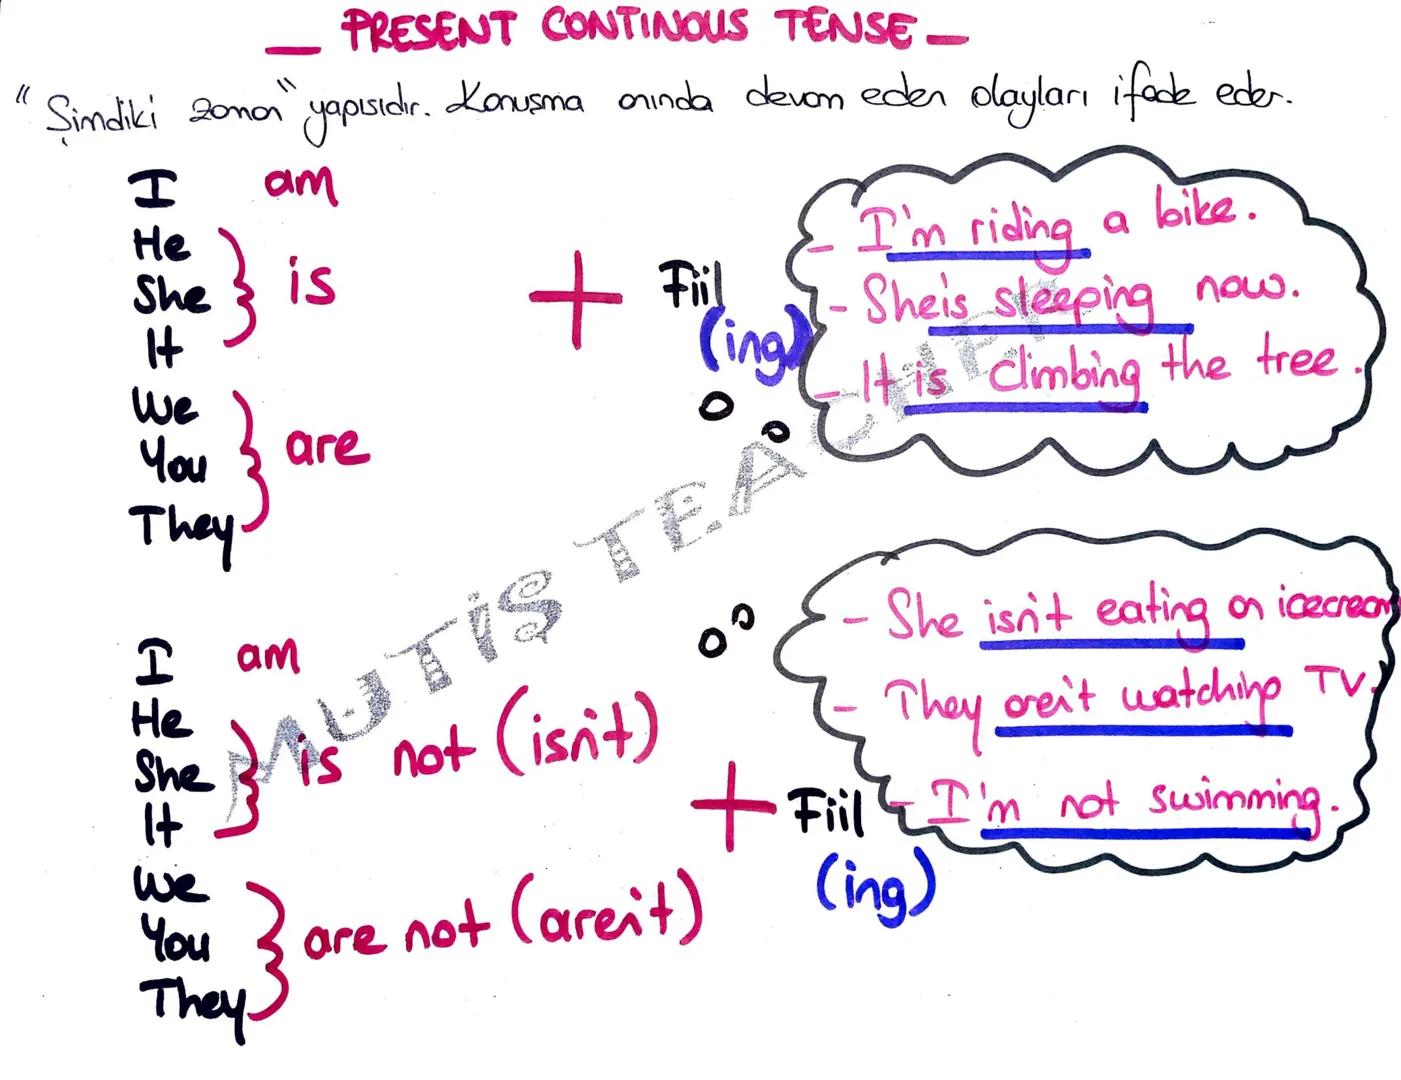 PRESENT CONTINOUS TENSE
"Şimdiki zaman" yapısıdır. Konuşma anında devam eden olayları ifade eder.
I am
He
She is
It
We
You are
They
+ Fiil
(ing)
- I'm riding a bike.
- She is sleeping now.
- It is climbing the tree.
MUTİS TEACHER
I am
He
She is not (isn't)
It
We
You are not (aren't)
They
+ Fiil
(ing)
- She isn't eating an icecream
- They aren't watching TV.
- I'm not swimming.